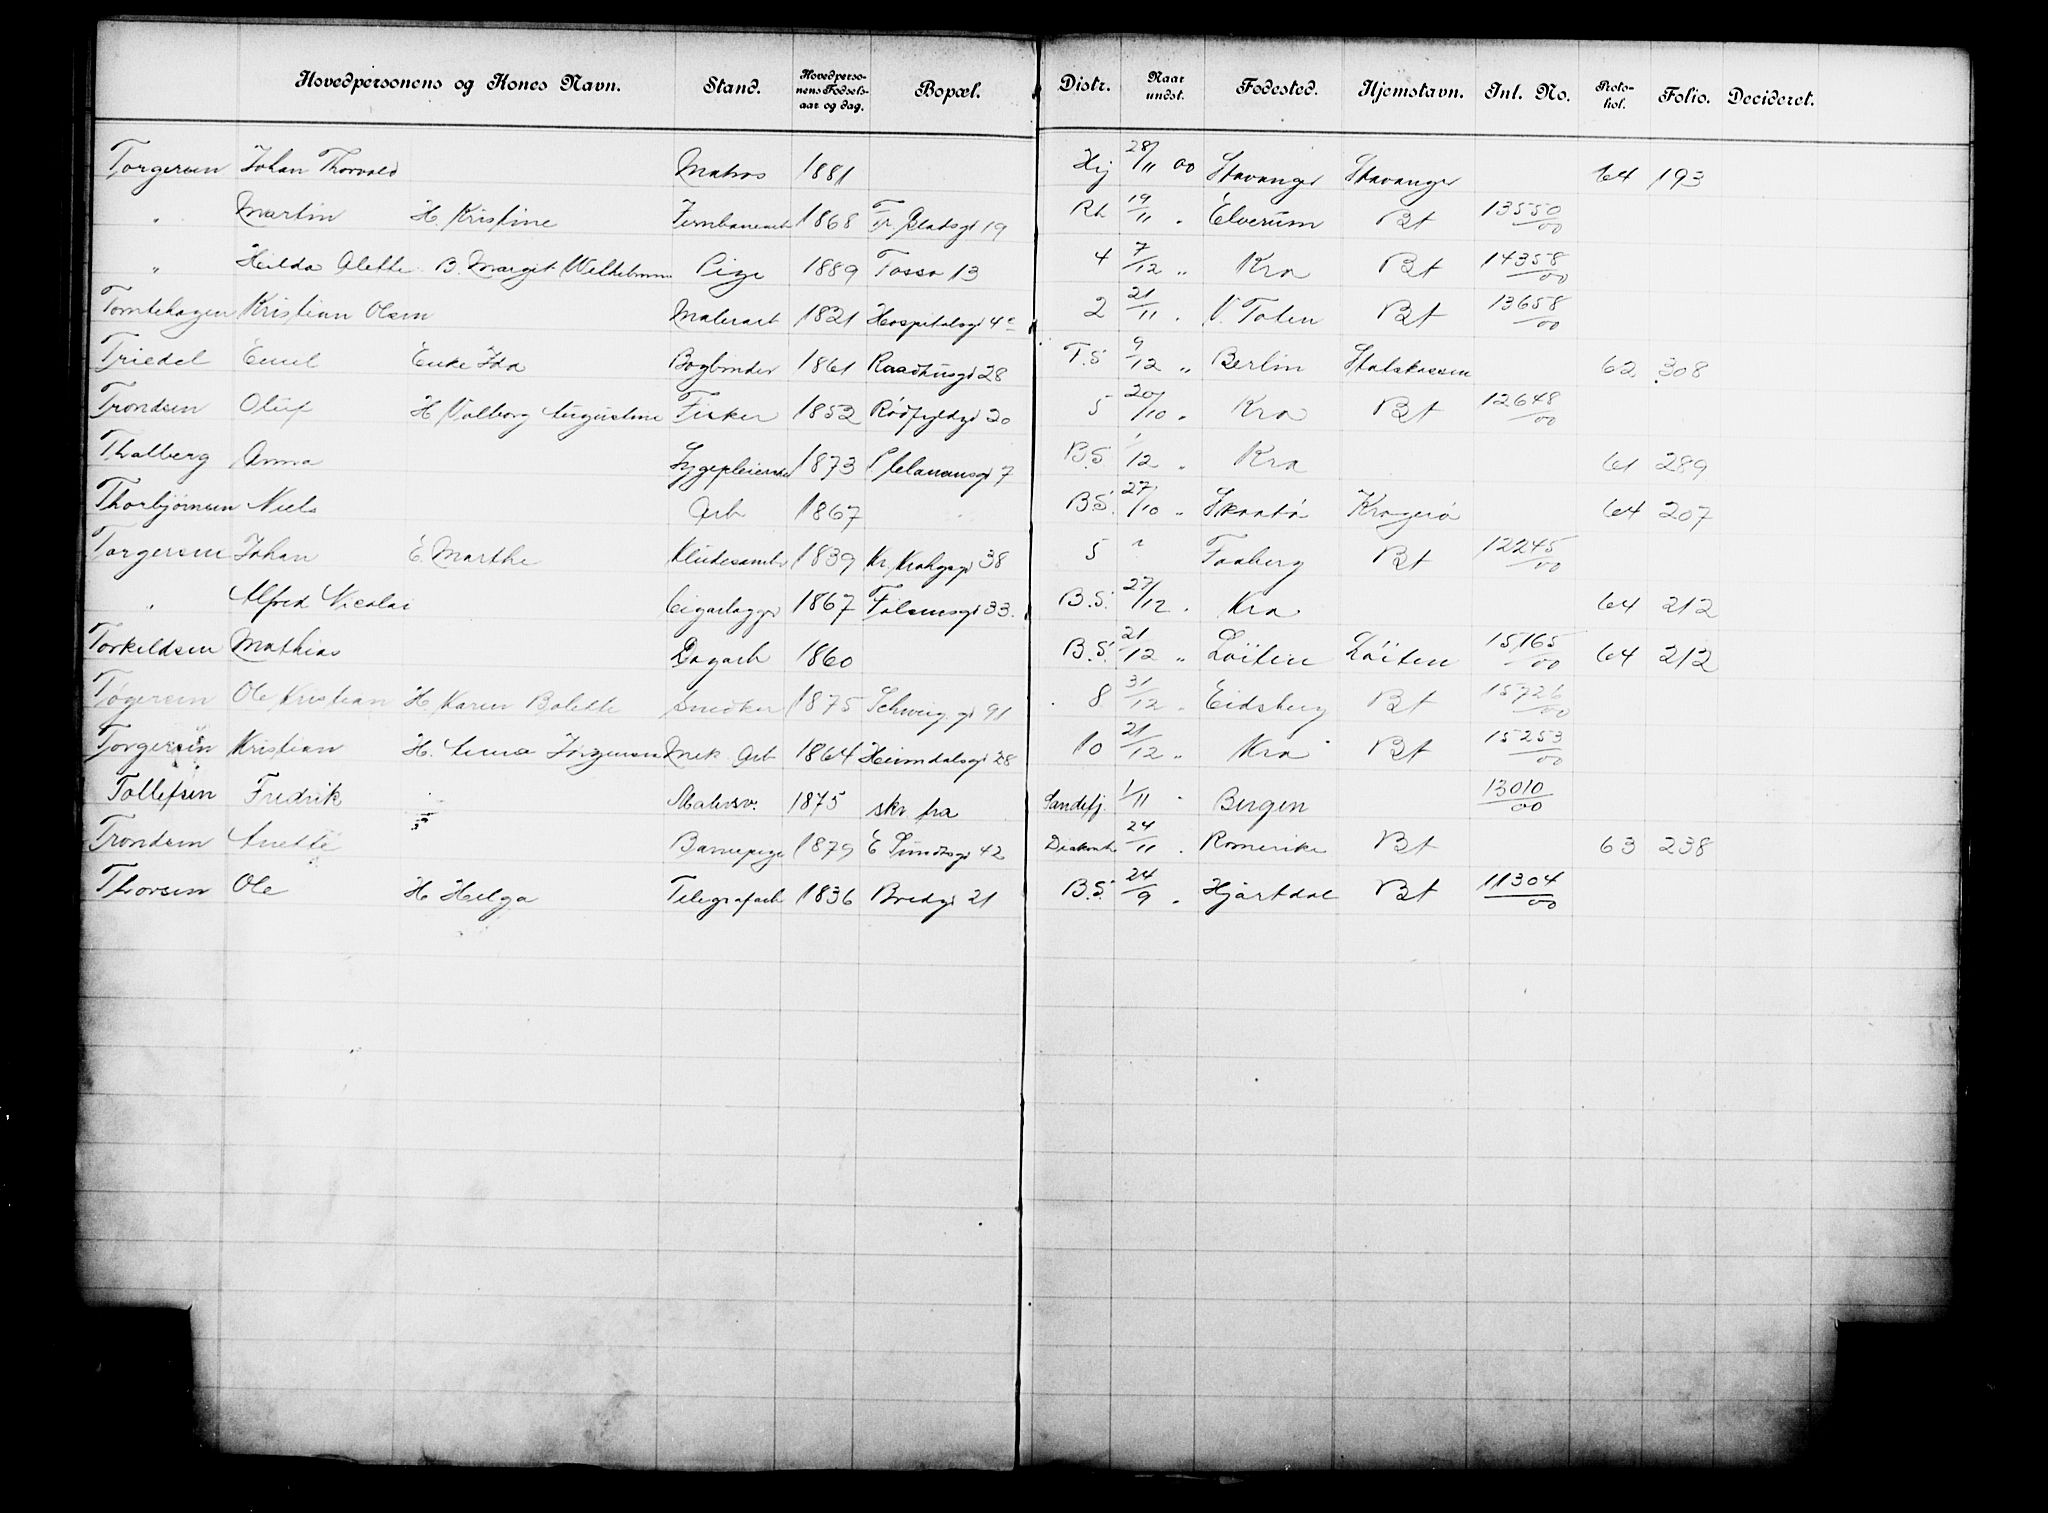 Hovedpersonens og Kones Navn. Stand. Hovedpersonens Fødselsaar og dag. Bopæl. Distr. Naar undst. Fødested. Hjemstavn. Int. No. Protokol. Folio. Decideret.
Torgersen Johan Thorvald Matros 1881 Hj 28/11 00 Stavanger Stavanger 64 193
" Martin H. Kristine Jernbanearb 1868 Tr. Pladsgd 19 Rh 19/11 " Elverum Bt 13550/00
" Hilda Alette B. Margit Wilhelmine Pige 1889 Tossa 13 4 7/12 " Kra Bt 14358/00
Tomtehagen Kristian Olsen Malerarb 1821 Hospitalsgd 4c 2 21/11 " V. Toten Bt 13658/00
Triedel Emil Enke Ida Bogbinder 1861 Raadhusgd 28 T.S. 9/12 " Berlin Statskassen 62 308
Trondsen Oluf H Valborg Augustine Fisker 1852 Rødfyldgd 20 5 20/10 " Kra Bt 12648/00
Thalberg Anna Sygepleierske 1873 7 B.S. 1/12 " Kra 61 289
Thorbjørnsen Niels Arb 1867 B.S. 27/10 " Skaatö Kragerö 64 207
Torgersen Johan E. Marthe Kludesamler 1839 Kr. Kroghsgd 38 5 " Faaberg Bt 12245/00
" Alfred Nicolai Cigarlagger 1867 Falsensgd 33. B.S. 27/12 " Kra. 64 212
Torkildsen Mathias Dagarb 1860 B.S. 21/12 " Löiten Löiten 15165/00 64 212
Tøgersen Ole Kristian H Karen Bolette Snedker 1875 Schweig.gd 91 8 31/12 " Eidsberg Bt 15726/00
Torgersen Kristian H. Anna Jörgensen Mek Arb 1864 Heimdalsgd 28 10 21/12 " Kra Bt 15253/00
Tollefsen Fredrik Malersv. 1875 skr fra Sandefj. 1/11 " Bergen 13010/00
Trondsen Anette Barnepige 1879 E Sundtsgd 42 Diakonh 24/11 " Romerike Bt 63 238
Thorsen Ole H Helga Telegrafarb 1836 Bredgd 21 B.S. 24/9 " Hjartdal Bt 11304/00